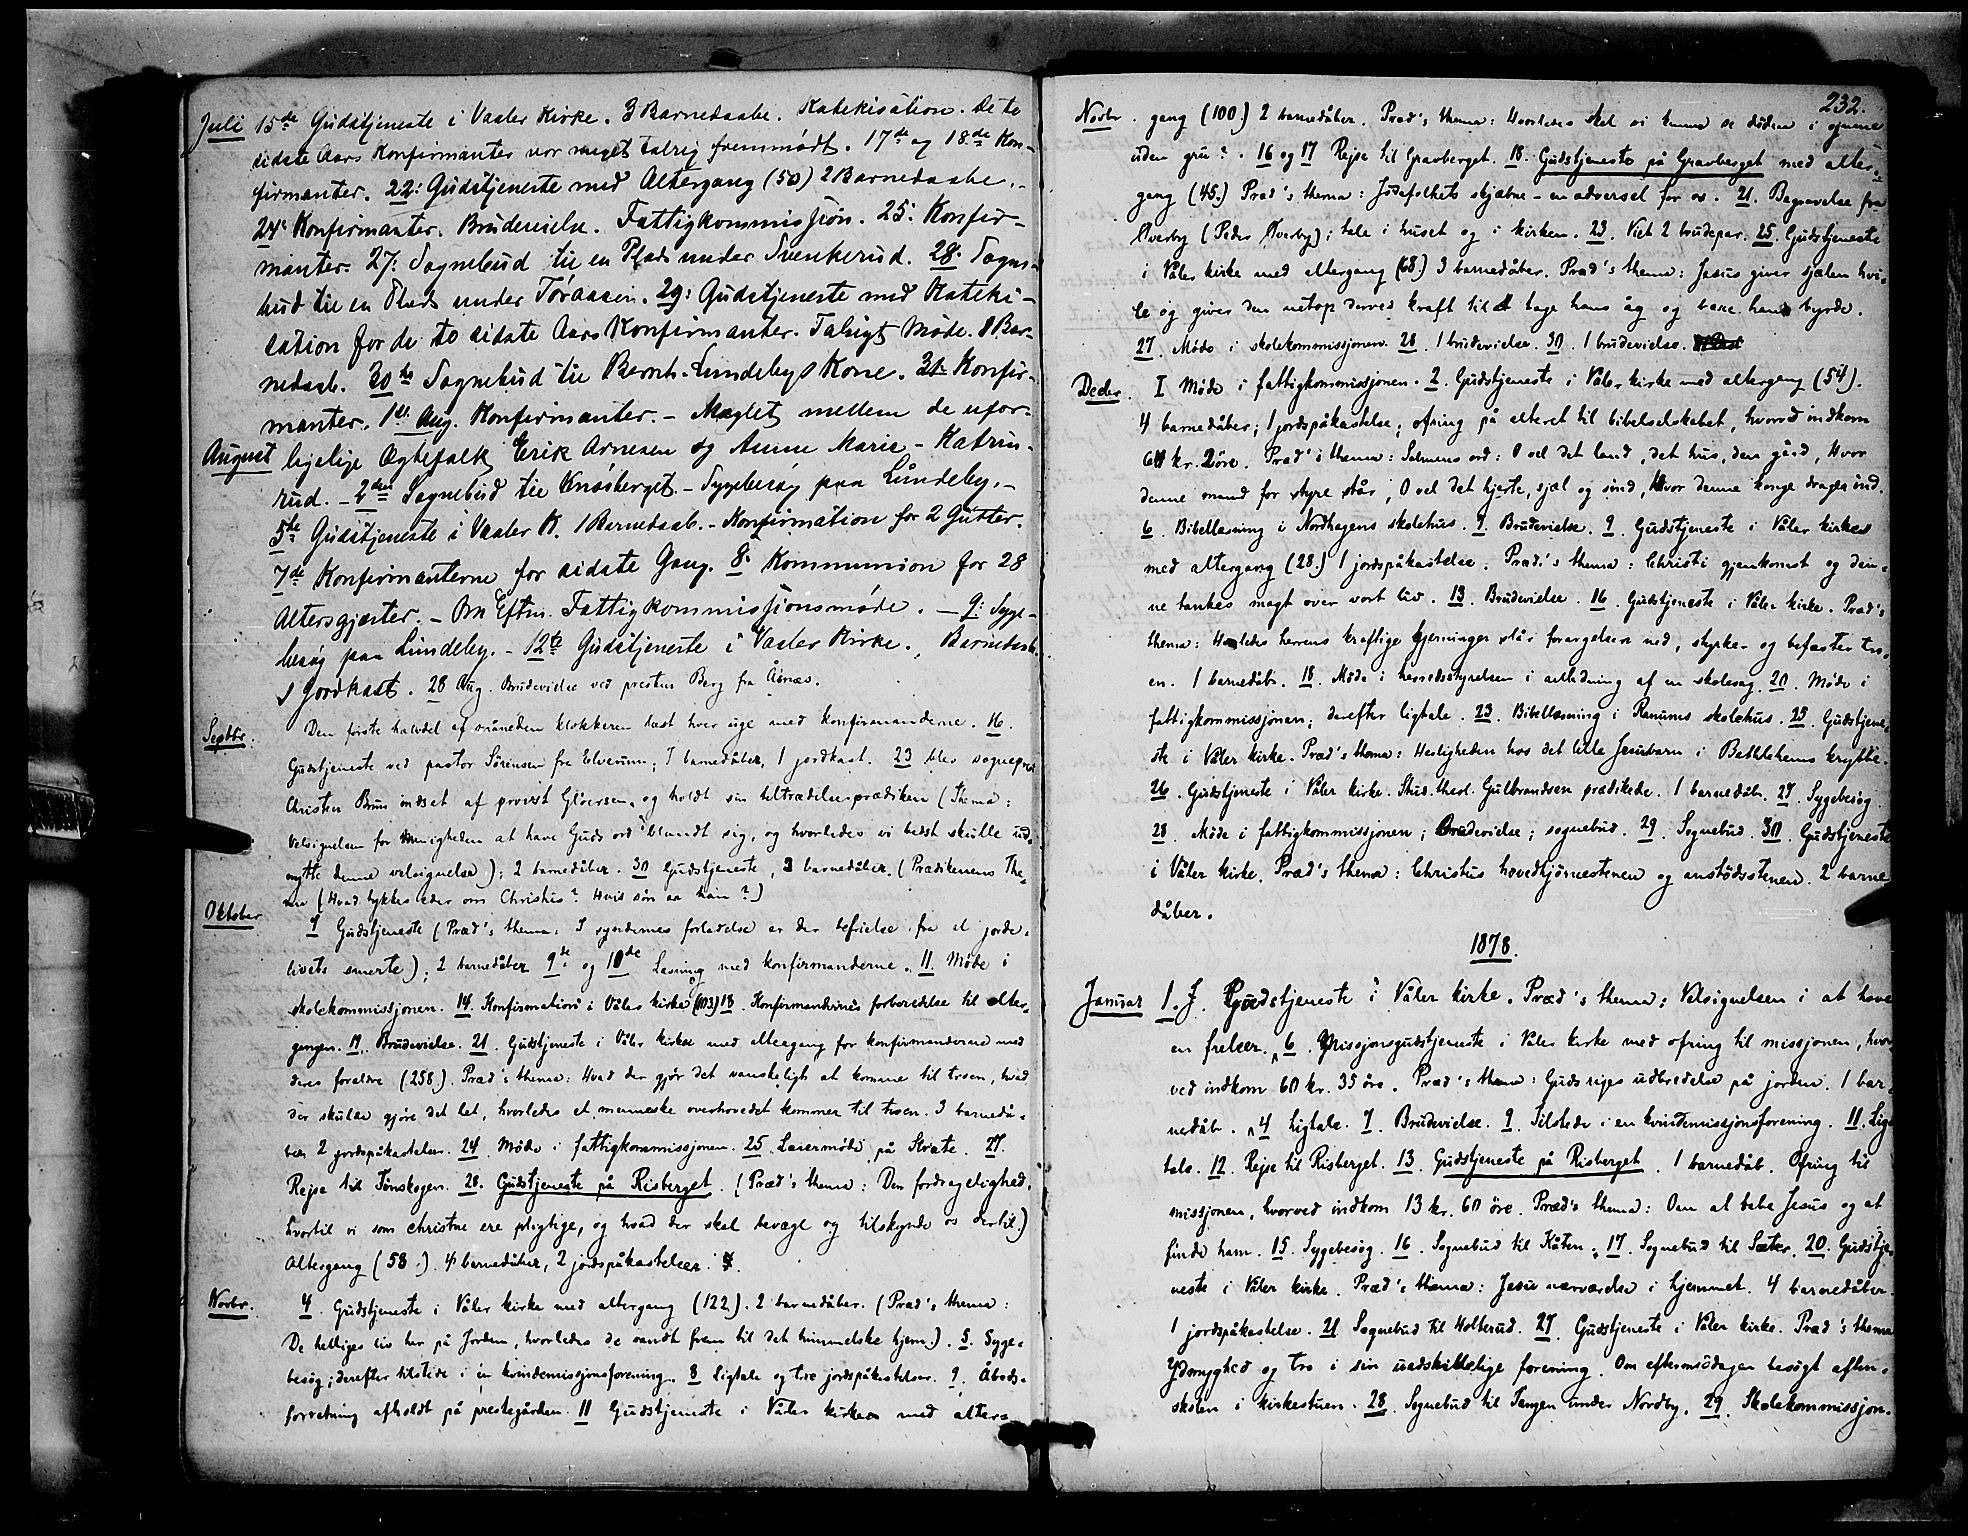 Juli 15de Gudstjeneste i Vaaler Kirke. 3 Barnedaabe. Katekisation. De to
sidste Aars Konfirmanter var meget talrig fremmødt. 17de og 18de Kon-
firmanter. 22: Gudstjeneste med Altergang (50) 2 Barnedaabe.
24: Konfirmanter. Brudevielse. Fattigkommission. 25: Konfir-
manter. 27: Sognebud til en Plads under Svenkerud. 28. Sogne-
bud til en Plads under Toraasen. 29: Gudstjeneste med Kateki-
sation for de to sidste Aars Konfirmanter. Talrigt Møde. 1 Bar-
nedaab. 30te Sognebud til Bernh. Lundebys Kone. 31: Konfir-
manter. 1ste Aug. Konfirmanter. - Mæglet mellem de ufor-
August ligelige Ægtefolk Erik Arnesen og Anne Marie - Katrin-
rud. - 2den Sognebud til Knasberget. - Sygebesøg paa Lundeby. -
5te Gudstjeneste i Vaaler K. 1 Barnedaab. - Konfirmation for 2 Gutter.
7de Konfirmanterne for sidste Gang. 8: Kommunion for 28
Altergjæster. - Om Eftm. Fattigkommissionsmøde. - 9: Syge-
besøg paa Lundeby. - 12te Gudstjeneste i Vaaler Kirke. Barnedaab.
1 Jordkast. 28 Aug. Brudevielse ved presten Berg fra Åsnes.
Septbr. Den første halvdel af måneden klokkeren læst hver uge med konfirmanderne. 16.
Gudstjeneste ved pastor Sörensen fra Elverum; 7 barnedåber, 1 jordkast. 23 blev sogneprest
Christen Brun indsat af provst Glöersen, og holdt sin tiltrædelsesprædiken (Thema:
Velsignelsen for menigheden at have Guds ord blandt sig, og hvorledes vi bedst skulle ud-
nytte denne velsignelse); 2 barnedåber. 30 Gudstjeneste, 3 barnedåber. (Prædikenens The-
ma (Hvad tykkes eder om Christus? Hvis søn er han?)
Oktober 7 Gudstjeneste (Præd's thema: I syndernes forladelse er der befrielse fra al jorde-
livets smerte); 2 barnedåber 9de og 10de Læsning med konfirmanderne. 11. Møde i
skolekommissjonen. 14. Konfirmation i Våler kirke (103) 18. Konfirmandernes forberedelse til alter-
gangen. 19. Brudevielse. 21. Gudstjeneste i Våler kirke med altergang for konfirmanderne med
deres forældre (258). Præd's thema: Hvad der gjør det vanskeligt at komme til troen, hvad
der skulde gjøre det let, hvorledes et menneske overhovedet kommer til troen. 3 barnedå-
ber 2 jordspåkastelser. 24. Møde i fattigkommissjonen. 25. Læsermøde på Stræte. 27.
Rejse til Finskogen. 28. Gudstjeneste på Risberget. (Præd's thema: Den fordragelighed,
hvortil vi som christne ere pligtige, og hvad der skal bevæge og tilskynde os dertil.)
Altergang (58.) 4 barnedåber, 2 jordspåkastelser.
Novbr. 4. Gudstjeneste i Våler kirke med altergang (122). 2 barnedåber. (Præd's thema:
De helliges liv her på Jorden, hvorledes de vandt frem til det himmelske hjem.). 5. Syge-
besøg; derefter tilstede i en kvindemissjonsforening. 8 Ligtale og tre jordspåkastelser. 9. Åbods-
forretning afholdt på prestegården. 11 Gudstjeneste i Våler kirke med alter-
232.
Novbr. gang (100.) 2 barnedåber. Præd's thema: Hvorledes skal vi kunne se døden i øjnene
uden gru?. 16 og 17 Rejse til Gravberget. 18. Gudstjeneste på Gravberget med alter-
gang (45.) Præd's thema: Jødefolkets skjæbne - en advarsel for os. 21. Begravelse fra
Averby (Peder Averby); tale i huset og i kirken. 23. Viet 2 brudepar. 25. Gudstjeneste
i Våler kirke med altergang (68.) 3 barnedåber. Præd's thema: Jesus giver sjælen hvi-
le og giver den netop derved kraft til at tage hans åg og bære hans byrde.
27. Møde i skolekommissjonen. 28. 1 brudevielse. 30. 1 brudevielse.
Decbr. 1 Møde i fattigkommissjonen. 2. Gudstjeneste i Våler kirke med altergang (54).
4 barnedåber; 1 jordspåkastelse; ofring på alteret til bibelselskabet, hvorved indkom
60 kr. 2 öre. Præd's thema: Salmens ord: O vel det land, det hus, den gård, Hvor
denne mand for styre står, O vel det hjerte, sjæl og sind, Hvor denne konge drager ind.
6. Bibellæsning i Nordhagens skolehus. 7. Brudevielse. 9. Gudstjeneste i Våler kirke
med altergang (28.) 1 jordspåkastelse. Præd's thema: Christi gjenkomst og den-
ne tankes magt over vort liv. 13. Brudevielse. 16. Gudstjeneste i Våler kirke. Præd's
thema: Hvorledes herrens kraftige gjerninger slår forargelsen ned, styrker og befæster tro-
en. 1 barnedåb. 18. Møde i herredsstyrelsen i anledning af en skolesag. 20. Møde i
fattigkommissjonen; derefter ligtale. 23. Bibellæsning i Ranums skolehus. 25. Gudstjene-
ste i Våler kirke. Præd's thema: Herligheden hos det lille Jesubarn i Bethlehems krybbe.
26. Gudstjeneste i Våler kirke. Stud. theol. Gulbrandsen prædikede. 1 barnedåb. 27. Sygebesøg.
28. Møde i fattigkommissjonen; Brudevielse; sognebud. 29. Sognebud. 30. Gudstjeneste
i Våler kirke. Præd's thema: Christus hovedhjørnestenen og anstødsstenen. 2 barne-
dåber.
1878.
Januar 1. Gudstjeneste i Våler kirke. Præd's thema: Velsignelsen i at have
en frelser. 6. Missjonsgudstjeneste i Våler kirke med ofring til missjonen, hvor-
ved indkom 60 kr. 35 öre. Præd's thema: Guds riges udbredelse på jorden. 1 bar-
nedåb. 4 Ligtale. 7. Brudevielse. 9. Tilstede i en kvindemissjonsforening. 11. Lig-
tale. 12. Rejse til Risberget. 13. Gudstjeneste på Risberget. 1 barnedåb. Ofring til
missjonen, hvorved indkom 13 kr. 60 öre. Præd's thema: Om at tabe Jesus og at
finde ham. 15. Sygebesøg. 16. Sognebud til Kåten. 17. Sognebud til Sæter. 20. Gudstje-
neste i Våler kirke. Præd's thema: Jesu nærværelse i hjemmet. 4 barnedåber.
1 jordspåkastelse. 21 Sognebud til Holterud. 27. Gudstjeneste i Våler kirke. Præd's thema
Ydmyghed og tro i sin uadskillelige forening. Om eftermiddagen besøgt aften-
skolen i kirkestuen. 28. Sognebud til Tangen under Nordby. 29. Skolekommissjon-